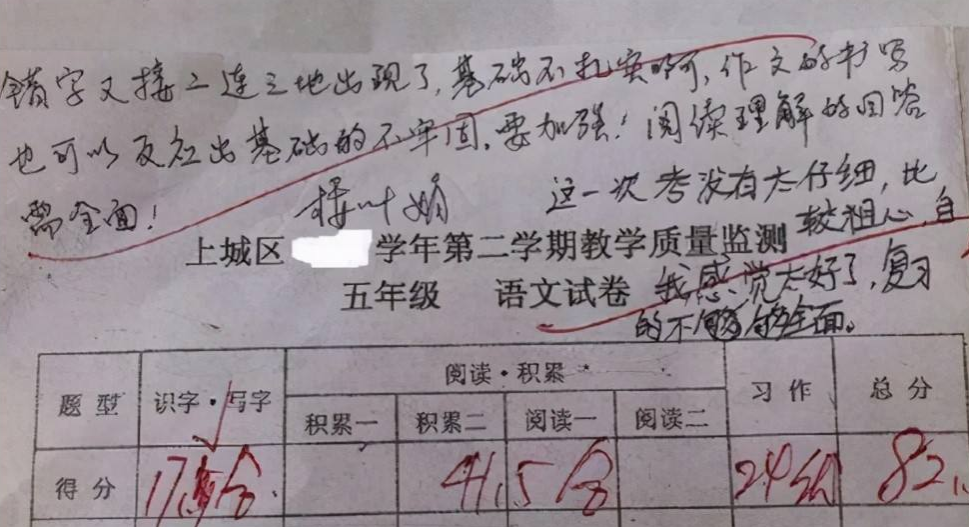 错字又接二连三地出现了,基础不扎实啊,作文的书写
也可以反应出基础的不牢固,要加强!阅读理解的回答
需全面!
这一次考没有太仔细,比
较粗心,自
我感觉太好了,复习
的不够全面。
上城区 学年第二学期教学质量监测
五年级 语文试卷
题型 识字·写字 阅读·积累 习作 总分
积累一 积累二 阅读一 阅读二
得分 17.5分 41.5分 24分 82.